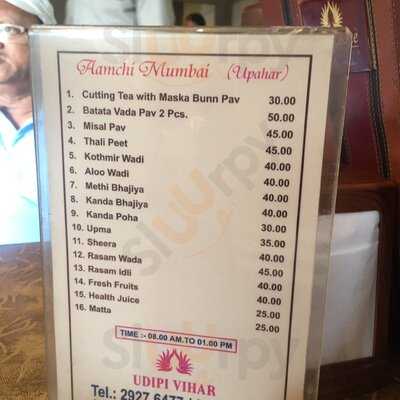 Aamchi Mumbai (Upahar)
1. Cutting Tea with Maska Bunn Pav 30.00
2. Batata Vada Pav 2 Pcs. 50.00
3. Misal Pav 45.00
4. Thali Peet 45.00
5. Kothmir Wadi 40.00
6. Aloo Wadi 40.00
7. Methi Bhajiya 40.00
8. Kanda Bhajiya 40.00
9. Kanda Poha 30.00
10. Upma 35.00
11. Sheera 40.00
12. Rasam Wada 45.00
13. Rasam Idli 40.00
14. Fresh Fruits 40.00
15. Health Juice 25.00
16. Matta 25.00
TIME :- 08.00 AM.TO 01.00 PM
UDIPI VIHAR
Tel.: 2927 6477